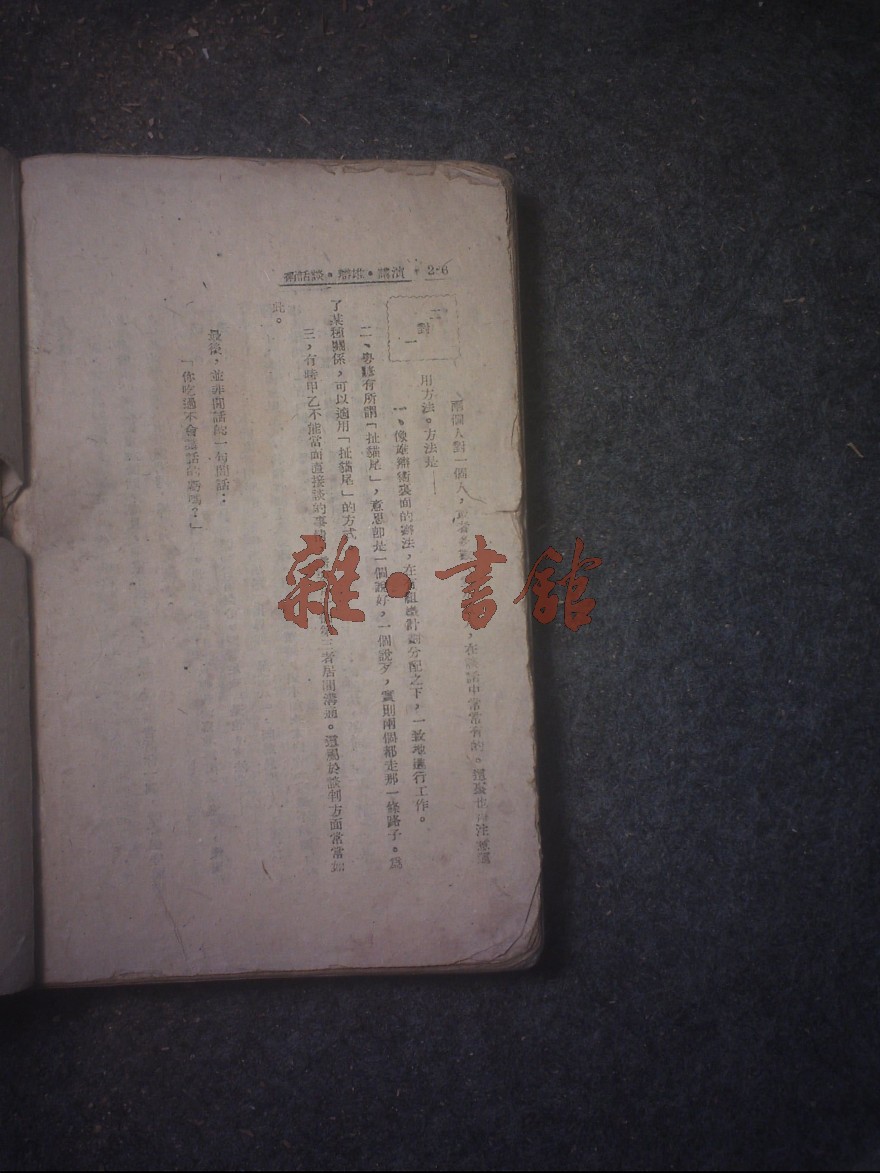 演講•雄辯•談話術
二對一
兩個人對一個人，在談話中常常有的。這
用方法。方法是——
一、像雄辯術裏面的辦法，在計劃分配之下，一致地進行工作。
二、粵諺有所謂「扯貓尾」，意思卽是一個說好，一個說歹，實則兩個都走那一條路子。爲
了某種關係，可以適用「扯貓尾」的方式
三、有時甲乙不能當面直接談的事 第三者居間溝通。這屬於談判方面常常如
此。
最後，並非閒話的一句閒話：
「你吃過不會說話的虧嗎？」
雜•書館